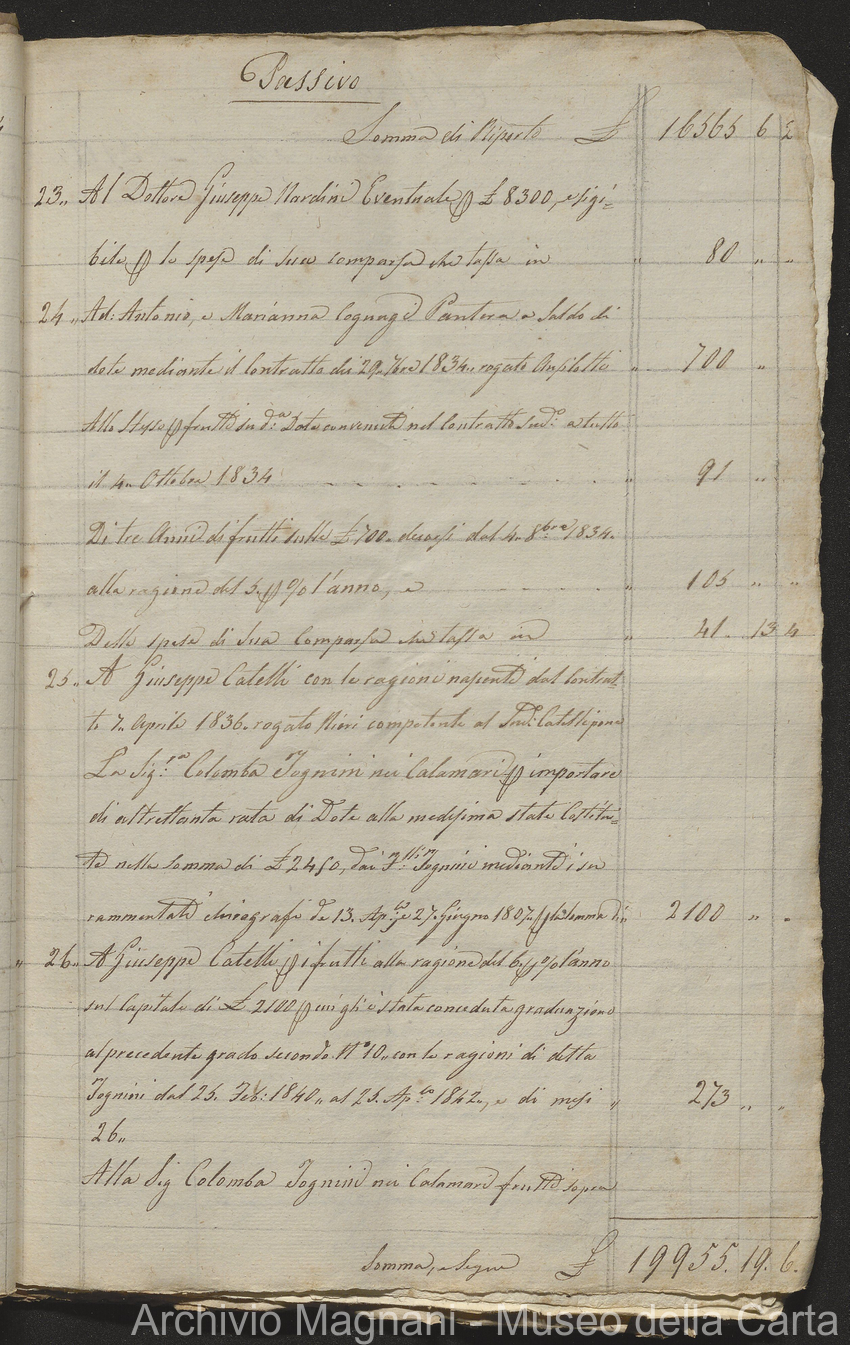 Passivo
Somma di Riporto £ 16565 6 2
23.. Al Dottore Giuseppe Nardini Eventuale p £ 8300, esigi=
bile p le spese di sua comparsa che tassa in " 80 " "
24.. Ad: Antonio, e Marianna Coguagi Pantera a Saldo di
dote mediante il Contratto dei 29. 7bre 1834.. rogato " 700 "
Allo Stesso p frutti su d.a Dote convenuti nel Contratto Sud.o a tutto
il 4.. Ottobre 1834 " 91 "
Di tre Anni di frutti sulle £ 700. decorsi dal 4. 8bre 1834.
alla ragione del 5. p % l'anno, e " 105 " "
Delle spese di Sua Comparsa che tassa in " 41. 13 4
25.. A Giuseppe Catelli con le ragioni nascenti dal Contrat=
to 7.. Aprile 1836. rogato Nieri competente al Sud.o Catelli pone
La Sig.ra Colomba Tognini nei Calamari p importare
di altrettanta rata di Dote alla medesima state Costitu=
te nella Somma di £ 2450, dai F.lli Tognini mediante i su
rammentati chirografi de 13. Ap.le e 27. Giugno 1807. p la Somma di " 2100 " "
" 26.. A Giuseppe Catelli p i frutti alla ragione del 6. p % l'anno
sul Capitale di £ 2100 p cui gli è stata conceduta graduazione
al precedente grado secondo N.o 10.. con le ragioni di detta
Tognini dal 25. Feb: 1840.. al 25. Ap.le 1842.., e di mesi " 273 " "
26..
Alla Sig Colomba Tognini nei Calamari frutti sopra
Somma, e Segue £ 19955. 19. 6.
Archivio Magnani - Museo della Carta